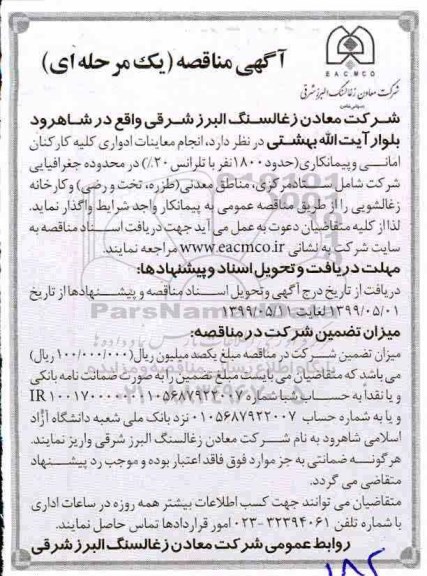 آگهی مناقصه (یک مرحله ای)
EACMCO
شرکت معادن زغالسنگ البرز شرقی
شرکت معادن زغالسنگ البرز شرقی واقع در شاهرود
بلوار آیت الله بهشتی در نظر دارد، انجام معاینات ادواری کلیه کارکنان
امانی و پیمانکاری (حدود ۱۸۰۰نفر با تلرانس ۲۰٪) در محدوده جغرافیایی
شرکت شامل ستادمرکزی، مناطق معدنی (طزره، تخت و رضی) و کارخانه
زغالشویی را از طریق مناقصه عمومی به پیمانکار واجد شرایط واگذار نماید.
لذا از کلیه متقاضیان دعوت به عمل می آید جهت دریافت اسناد مناقصه به
سایت شرکت به نشانی www.eacmco.ir مراجعه نمایند.
مهلت دریافت و تحویل اسناد و پیشنهادها:
دریافت از تاریخ درج آگهی و تحویل اسناد مناقصه و پیشنهادها از تاریخ
۱۳۹۹/۰۵/۰۱ لغایت ۱۳۹۹/۰۵/۱۱
میزان تضمین شرکت در مناقصه:
میزان تضمین شرکت در مناقصه مبلغ یکصد میلیون ریال (۱۰۰/۰۰۰/۰۰۰ ریال)
می باشد که متقاضیان می بایست مبلغ تضمین را به صورت ضمانت نامه بانکی
و یا نقداً به حساب شبا شماره IR
و یا به شماره حساب ۰۱۰۵۶۸۷۹۲۲۰۰۷ نزد بانک ملی شعبه دانشگاه آزاد
اسلامی شاهرود به نام شرکت معادن زغالسنگ البرز شرقی واریز نمایند.
هرگونه ضمانتی به جز موارد فوق فاقد اعتبار بوده و موجب رد پیشنهاد
متقاضی می گردد.
متقاضیان می توانند جهت کسب اطلاعات بیشتر همه روزه در ساعات اداری
با شماره تلفن ۳۲۳۹۴۰۶۱-۰۲۳ امور قراردادها تماس حاصل نمایند.
روابط عمومی شرکت معادن زغالسنگ البرز شرقی
۱۸۲